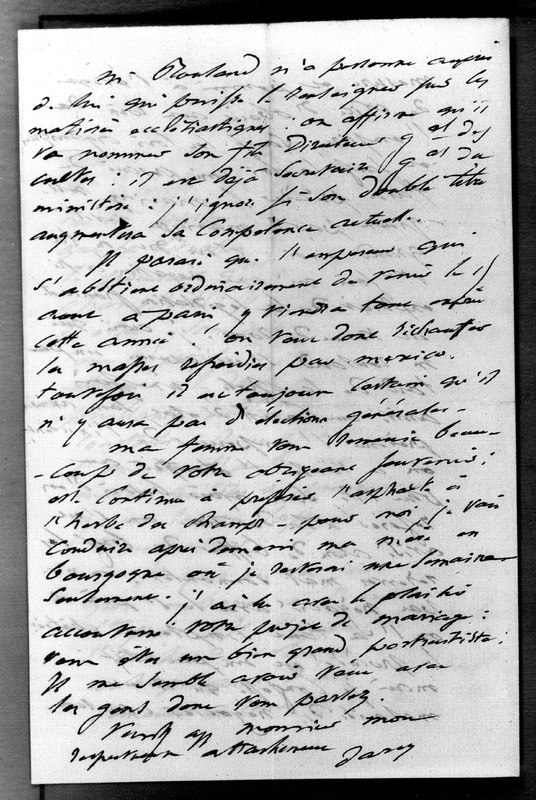 M Rouland n'a personne auprès
de lui qui puisse le renseigner sur les
matières ecclésiastiques. on affirme qu'il
va nommer son fils Directeur gal des
cultes : il est déjà secrétaire gal du
ministère : j'ignore si son double titre
augmentera sa compétence actuelle.
Il paraît que l'empereur qui
s'abstient ordinairement de venir le 15
aout a paris y viendra tout exprès
cette année. on veut donc réchauffer
les masses refroidies par mexico.
toutefois il est toujours certain qu'il
n'y aura pas d'élections générales -
ma femme vous remercie beau-
- coup de votre obligeant souvenir :
elle continue à préférer l'asphalte à
l'herbe des champs - pour moi je vais
conduire après demain ma mère en
bourgogne où je resterai une semaine
seulement. j'ai lu avec le plaisir
accoutumé votre projet de mariage :
vous êtes un bien grand portraitiste :
Il me semble avoir vécu avec
les gens dont vous parlez.
monsieur mon
respectueux attachement